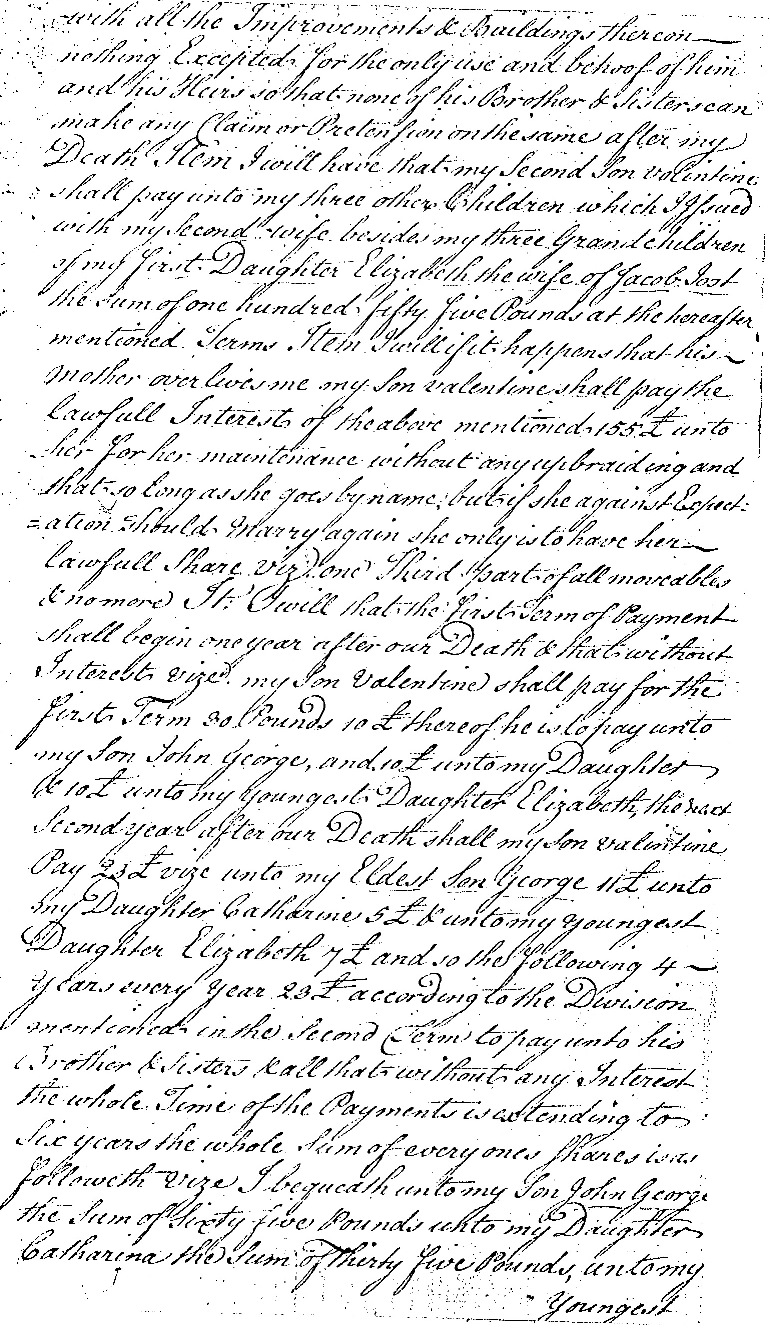 with all the Improvements & Buildings thereon —
nothing Excepted for the only use and behoof of him
and his Heirs so that none of his Brother & Sisters can
make any Claim or Pretension on the same after my
Death Item I will have that my Second Son Volintine
= shall pay unto my three other Children which Issued
with my Second wife besides my three Grandchildren
of my first Daughter Elizabeth the wife of Jacob Jost
the sum of one hundred fifty five Pounds at the hereafter
mentioned Terms Item I will if it happens that his —
Mother overlives me my Son Valentine shall pay the
lawfull Interest of the above mentioned 155 £ unto
her for her maintenance without any upbraiding and
that so long as she goes by name, but if she against Expect=
=ation should Marry again she only is to have her —
lawfull Share vizd. one Third part of all moveables
& no more It: I will that the first Term of Payment
shall begin one year after our Death & that without
Interest vized. my Son Valentine shall pay for the
first Term 30 Pounds 10 £ thereof he is to pay unto
my Son John George, and 10 £ unto my Daughter
& 10 £ unto my youngest Daughter Elizabeth, the next
Second year after our Death shall my Son Valentine
Pay 23 £ vize unto my Eldest Son George 11 £ unto
my Daughter Catharine 5 £ & unto my youngest
Daughter Elizabeth 7 £ and so the following 4 —
years every year 23 £ according to the Division
mentioned in the Second Term to pay unto his
Brother & Sisters & all that without any Interest
the whole Time of the Payments is extending to
Six years the whole Sum of every ones Shares is as
followeth Vize I bequeath unto my Son John George
the Sum of Sixty five Pounds unto my Daughter
Catharina the Sum of thirty five Pounds, unto my
Youngest